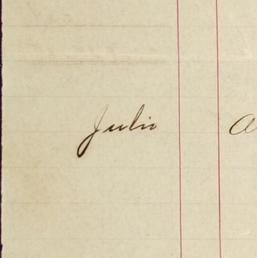 Julio a